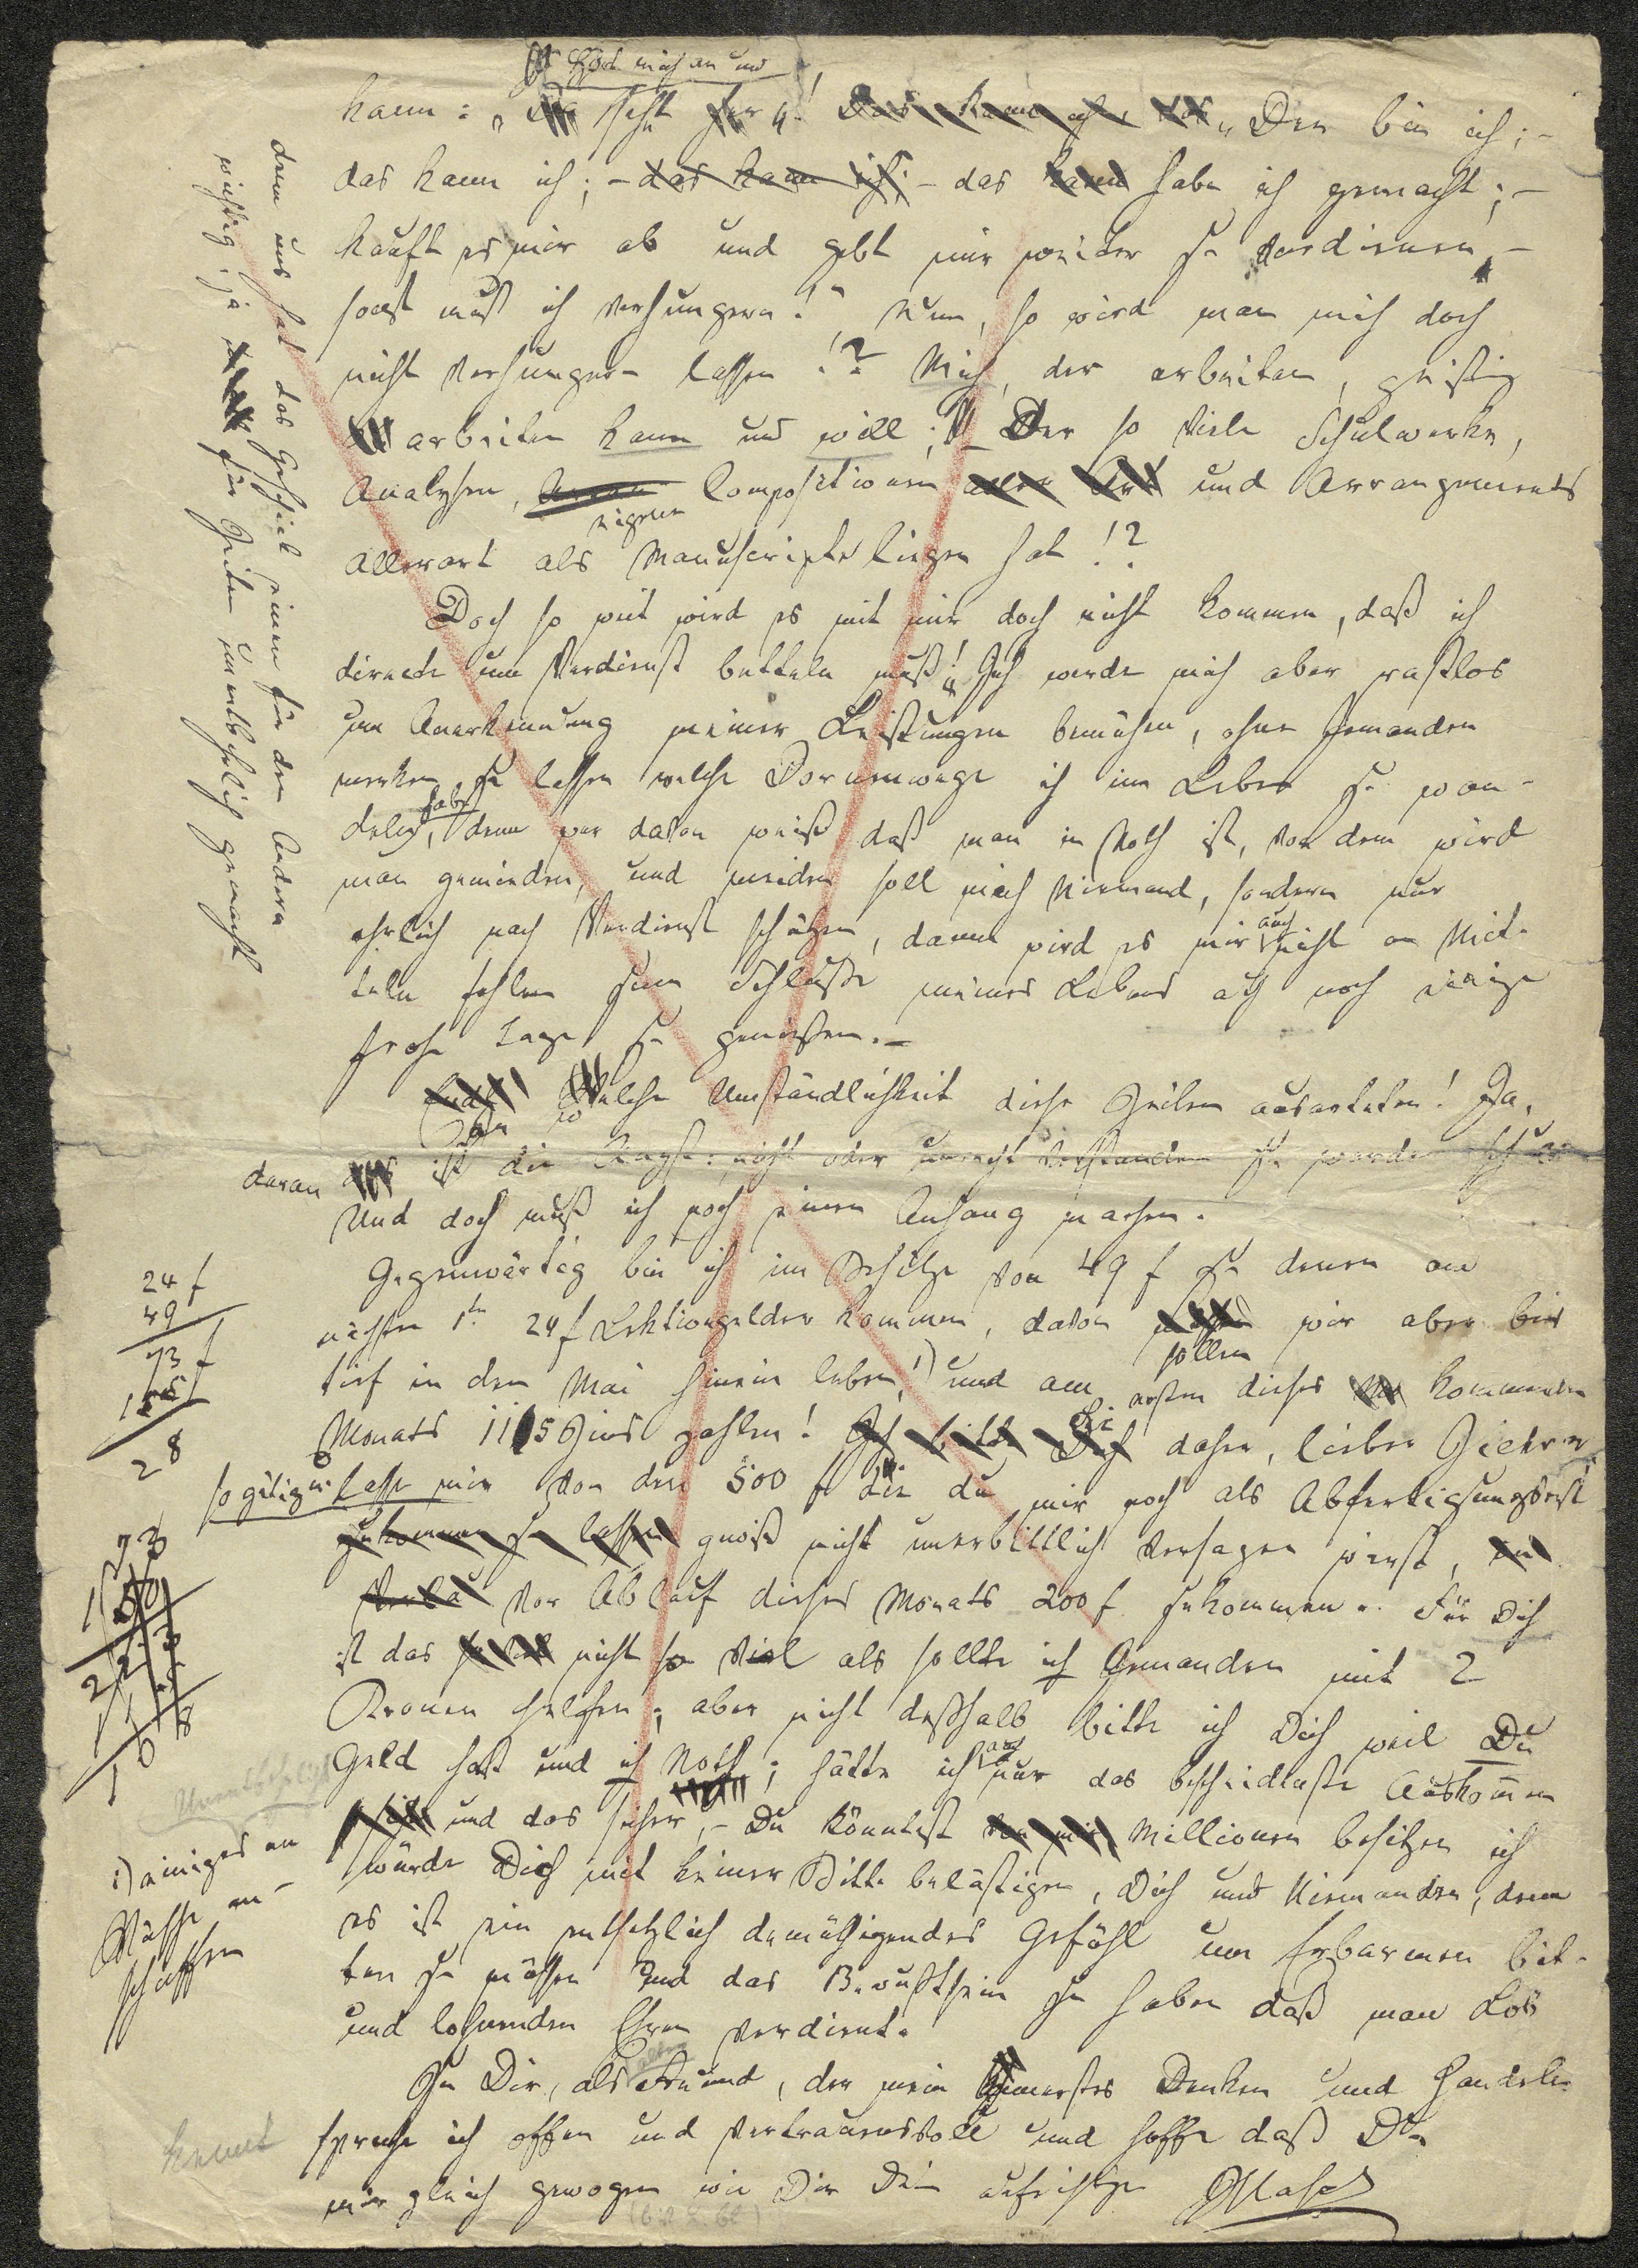 Hört mich an und
kann: „ seht her! Der bin ich; –
das kann ich; – das kann ich; – das kann habe ich gemacht; –
kauft es mir ab und gebt mir weiter zu verdienen, –
sonst muß ich verhungern!“ Nun, so wird man mich doch
nicht verhungern lassen!? Mich, der arbeiten, geistig
arbeiten kann und will; Der so viele Schulwerke,
Analysen, Compositionen aller Art und Arrangements
eigene
allerart als Manuscripte liegen hat!?
Doch so weit wird es mit mir doch nicht kommen, daß ich
directe um Verdienst betteln muß! Ich werde mich aber rastlos
um Anerkennung meiner Leistungen bemühen, ohne Jemanden
merken zu lassen welche Dornenwege ich im Leben zu wan-
habe
deln, denn wer davon weiß daß man in Noth ist, von dem wird
man gemieden, und meiden soll mich Niemand, sondern nur
ehrlich nach Verdienst schätzen, dann wird es mir auch nicht an Mit-
teln fehlen zum Schluße meines Lebens noch einige
frohe Tage zu genießen. –
Welche Umständlichkeit diese Zeilen ausarteten! Ja,
daran ist die Angst: nicht oder unrecht verstanden zu werden
Und doch muß ich noch einen Anhang machen.
Gegenwärtig bin ich im Besitze von 49 f zu denen am
nächsten 1ten 24 f Lektiongelder kommen, davon wir aber bis
sollen
tief in den Mai hinein leben, 1) und am ersten dieses kommenden
Monats 115 Zins zahlen! Ich bitte Dich daher, lieber
so gütig u. lasse mir von den 500 f die du mir noch als Abfertigungsrest
zukommen zu lassen gewiß nicht unerbittlich versagen wirst,
vor Ablauf dieses Monats 200 f zukommen. Für Dich
ist das nicht so viel als sollte ich Jemanden mit 2
Kronen helfen; aber nicht deßhalb bitte ich Dich weil Du
Geld hast und ich Noth; hätte ich auch nur das bescheidenste Auskommen
und das sicher, – Du könntest Millionen besitzen ich
würde Dich mit keiner Bitte belästigen, Dich und Niemanden, denn
es ist ein entsetzlich demüthigendes Gefühl um Erbarmen bit-
ten zu müssen und das Bewußtsein zu haben daß man Lob
und lohnenden Ehren verdient.
Zu Dir, als alten Freund, der mein innerstes Denken und Handeln
kennt spreche ich offen und vertrauensvoll und hoffe daß Du
mir gleich gewogen wie Dir Dein aufrichtiger
denn uns hat das Geschick einen für den Andern
wichtig, ja für Zeiten unentbehrlich gemacht
24 f
49
73 f
28
73
Unentbehrlich
1) einiges an
Wäsche an-
schaffen